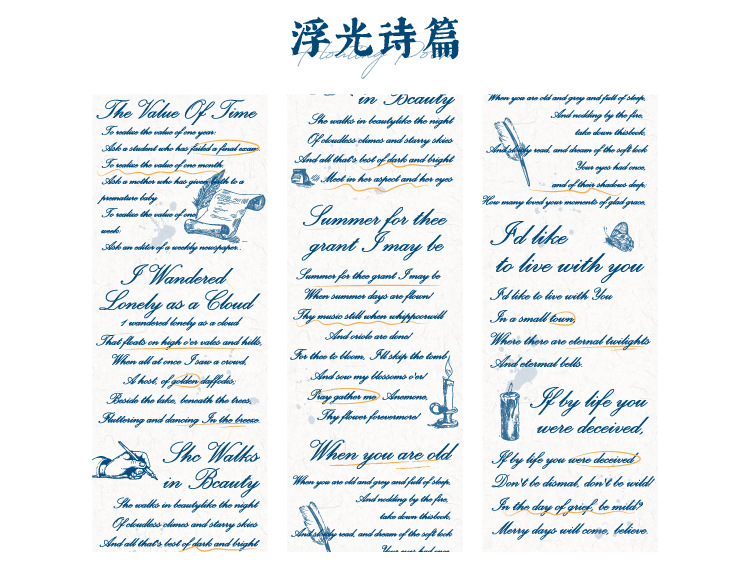 浮光诗篇
Floating Poem
The Value Of Time
To realize the value of one year:
Ask a student who has failed a final exam.
To realize the value of one month
Ask a mother who has given birth to a
premature baby.
To realize the value of one
week:
Ask an editor of a weekly newspaper..
I Wandered
Lonely as a Cloud
I wandered lonely as a cloud
That floats on high o'er vales and hills,
When all at once I saw a crowd,
A host, of golden daffodis;
Beside the lake, beneath the trees,
Fluttering and dancing In the breeze.
She Walks
in Beauty
She walks in beautylike the night
Of cloudless climes and starry skies
And all that's best of dark and bright
in Beauty
She walks in beautylike the night
Of cloudless climes and starry skies
And all that's best of dark and bright
Meet in her aspect and her eyes
Summer for thee
grant I may be
Summer for thee grant I may be
When summer days are flown!
Thy music still when whipporwill
And oriole are done!
For thee to bloom, I'll skip the tomb
And sow my blossoms o'er!
Pray gather me Anemone,
Thy flower forevermore!
When you are old
When you are old and grey and full of sleep,
And nodding by the fire,
take down thisbook,
And slowly read, and dream of the soft lock
Your eyes had once,
When you are old and grey and full of sleep,
And nodding by the fire,
take down thisbook,
And slowly read, and dream of the soft lock
Your eyes had once,
and of their shadows deep;
How many loved your moments of glad grace,
I'd like
to live with you
I'd like to live with You
In a small town,
Where there are eternal twilights
And etermal bells.
If by life you
were deceived,
If by life you were deceived
Don't be dismal, don't be wild!
In the day of grief, be mild?
Merry days will come, believe.